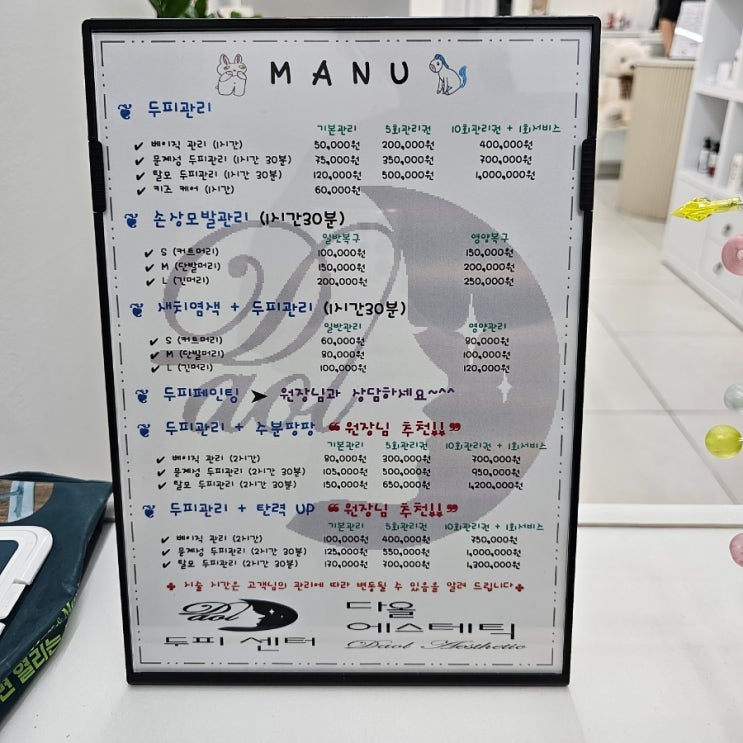 MANU
두피관리
기본관리 5회관리권 10회관리권 + 1회서비스
✔ 베이직 관리 (1시간) 50,000원 200,000원 400,000원
✔ 문제성 두피관리 (1시간 30분) 75,000원 350,000원 700,000원
✔ 탈모 두피관리 (1시간 30분) 120,000원 500,000원 1,000,000원
✔ 키즈 케어 (1시간) 60,000원
손상모발관리 (1시간30분)
일반복구 영양복구
✔ S (커트머리) 100,000원 150,000원
✔ M (단발머리) 150,000원 200,000원
✔ L (긴머리) 200,000원 250,000원
새치염색 + 두피관리 (1시간30분)
일반관리 영양관리
✔ S (커트머리) 60,000원 80,000원
✔ M (단발머리) 80,000원 100,000원
✔ L (긴머리) 100,000원 120,000원
두피페인팅 ➤ 원장님과 상담하세요~^^
두피관리 + 수분팡팡 ❝원장님 추천!!❞
기본관리 5회관리권 10회관리권 + 1회서비스
✔ 베이직 관리 (2시간) 80,000원 300,000원 700,000원
✔ 문제성 두피관리 (2시간 30분) 105,000원 500,000원 950,000원
✔ 탈모 두피관리 (2시간 30분) 150,000원 650,000원 1,200,000원
두피관리 + 탄력 UP ❝원장님 추천!!❞
기본관리 5회관리권 10회관리권 + 1회서비스
✔ 베이직 관리 (2시간) 100,000원 400,000원 750,000원
✔ 문제성 두피관리 (2시간 30분) 125,000원 550,000원 1,000,000원
✔ 탈모 두피관리 (2시간 30분) 170,000원 700,000원 1,300,000원
✚ 시술 시간은 고객님의 관리에 따라 변동될 수 있음을 알려 드립니다✚
Daol
두피 센터
다올
에스테틱
Daol Aesthetic
Daol
열리는